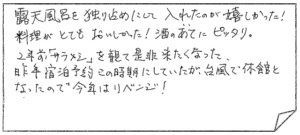 露天風呂を独り占めにして入れたのが嬉しかった!
料理がとてもおいしかった!酒のあてにピッタリ。
2年前「サラメシ」を観て是非来たくなった。
昨年宿泊予約この時期にしていたが、台風で休館と
なったので今年はリベンジ!